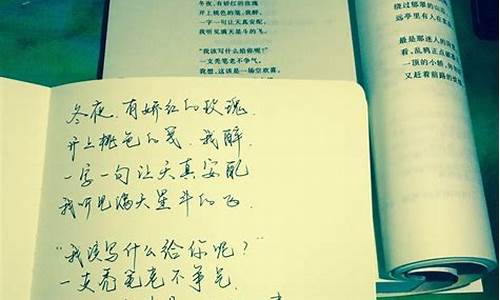 冬夜,有娇红的玫瑰
开上桃色的笺,我醉,
一字一句让天真安配,
我听见满天星斗的飞。
“我该写什么给你呢?”
一支秃笔老不争气,
我想,这该是一场空欢喜。
绕过郁翠的山
远亭里有人在
最是那迷人的
看,乱鸦正点
一顶的小轿,
又赶着前路的
冬夜,有娇红的玫瑰,
开上桃色的笺,我醉,
一字一句让天真安配
我听见满天星斗的飞.
“我该写什么给你呢?”
一支秃笔老不争气,